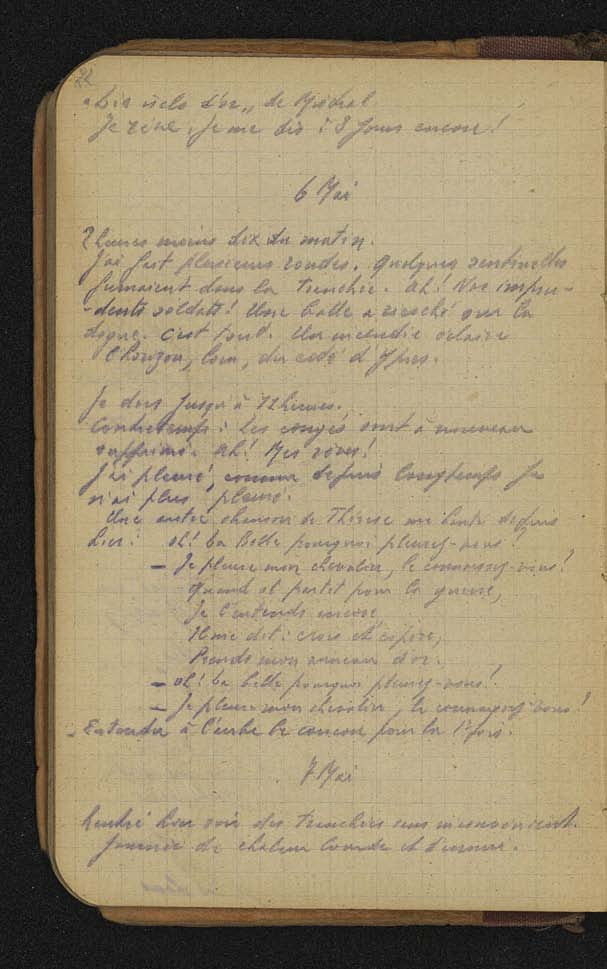 "Les isclo d'or" de Mistral
Je rêve, je me dis : 8 jours encore !
6 Mai
2 heures moins dix du matin.
J'ai fait plusieurs rondes. Quelques sentinelles
fumaient dans la tranchée. Ah ! Nos impru-
-dents soldats ! Une balle a ricoché sur la
digue. C'est tout. Un incendie éclaire
l'horizon, loin, du coté d'Ypres.
Je dors jusqu'à 12 heures.
Contretemps : les congés sont à nouveau
supprimés. Ah ! Mes rêves !
J'ai pleuré, comme depuis longtemps je
n'ai plus pleuré.
Une autre chanson de Thérèse me hante depuis
hier : Oh ! La Belle pourquoi pleurez-vous !
- Je pleure mon chevalier, le connaissez-vous !
Quand il partit pour la guerre,
Je l'entends encore,
Il me dit : crois et espère,
Prends mon anneau d'or.
- Oh ! La belle pourquoi pleurez-vous !
- Je pleure mon chevalier, le connaissez-vous !
- Entendu à l'aube le coucou pour la 1e fois.
7 Mai
Rentré hier soir des tranchées sans inconvénient.
Journée de chaleur lourde et d'ennui.